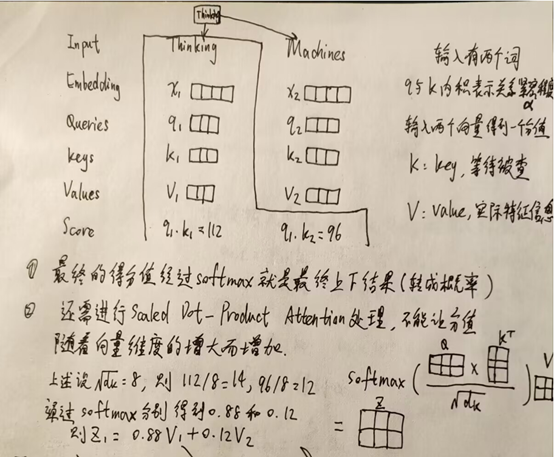 Thinking
Input Thinking Machines
Embedding x₁ x₂
Queries q₁ q₂
keys k₁ k₂
Values V₁ V₂
Score q₁·k₁=112 q₁·k₂=96
输入有两个词
q与k内积表示关系紧密
α
输入两个向量得到一个分值
K: key, 等待被查
V: value, 实际特征信息
① 最终的得分值经过softmax就是最终上下结果(转成概率)
② 还需进行Scaled Dot-Product Attention处理,不能让分值
随着向量维度的增大而增加.
上述设√dk=8, 则 112/8=14, 96/8=12
通过softmax分别得到0.88和0.12
则Z₁=0.88V₁+0.12V₂
Q × Kᵀ V
softmax( / √dk )
= Z